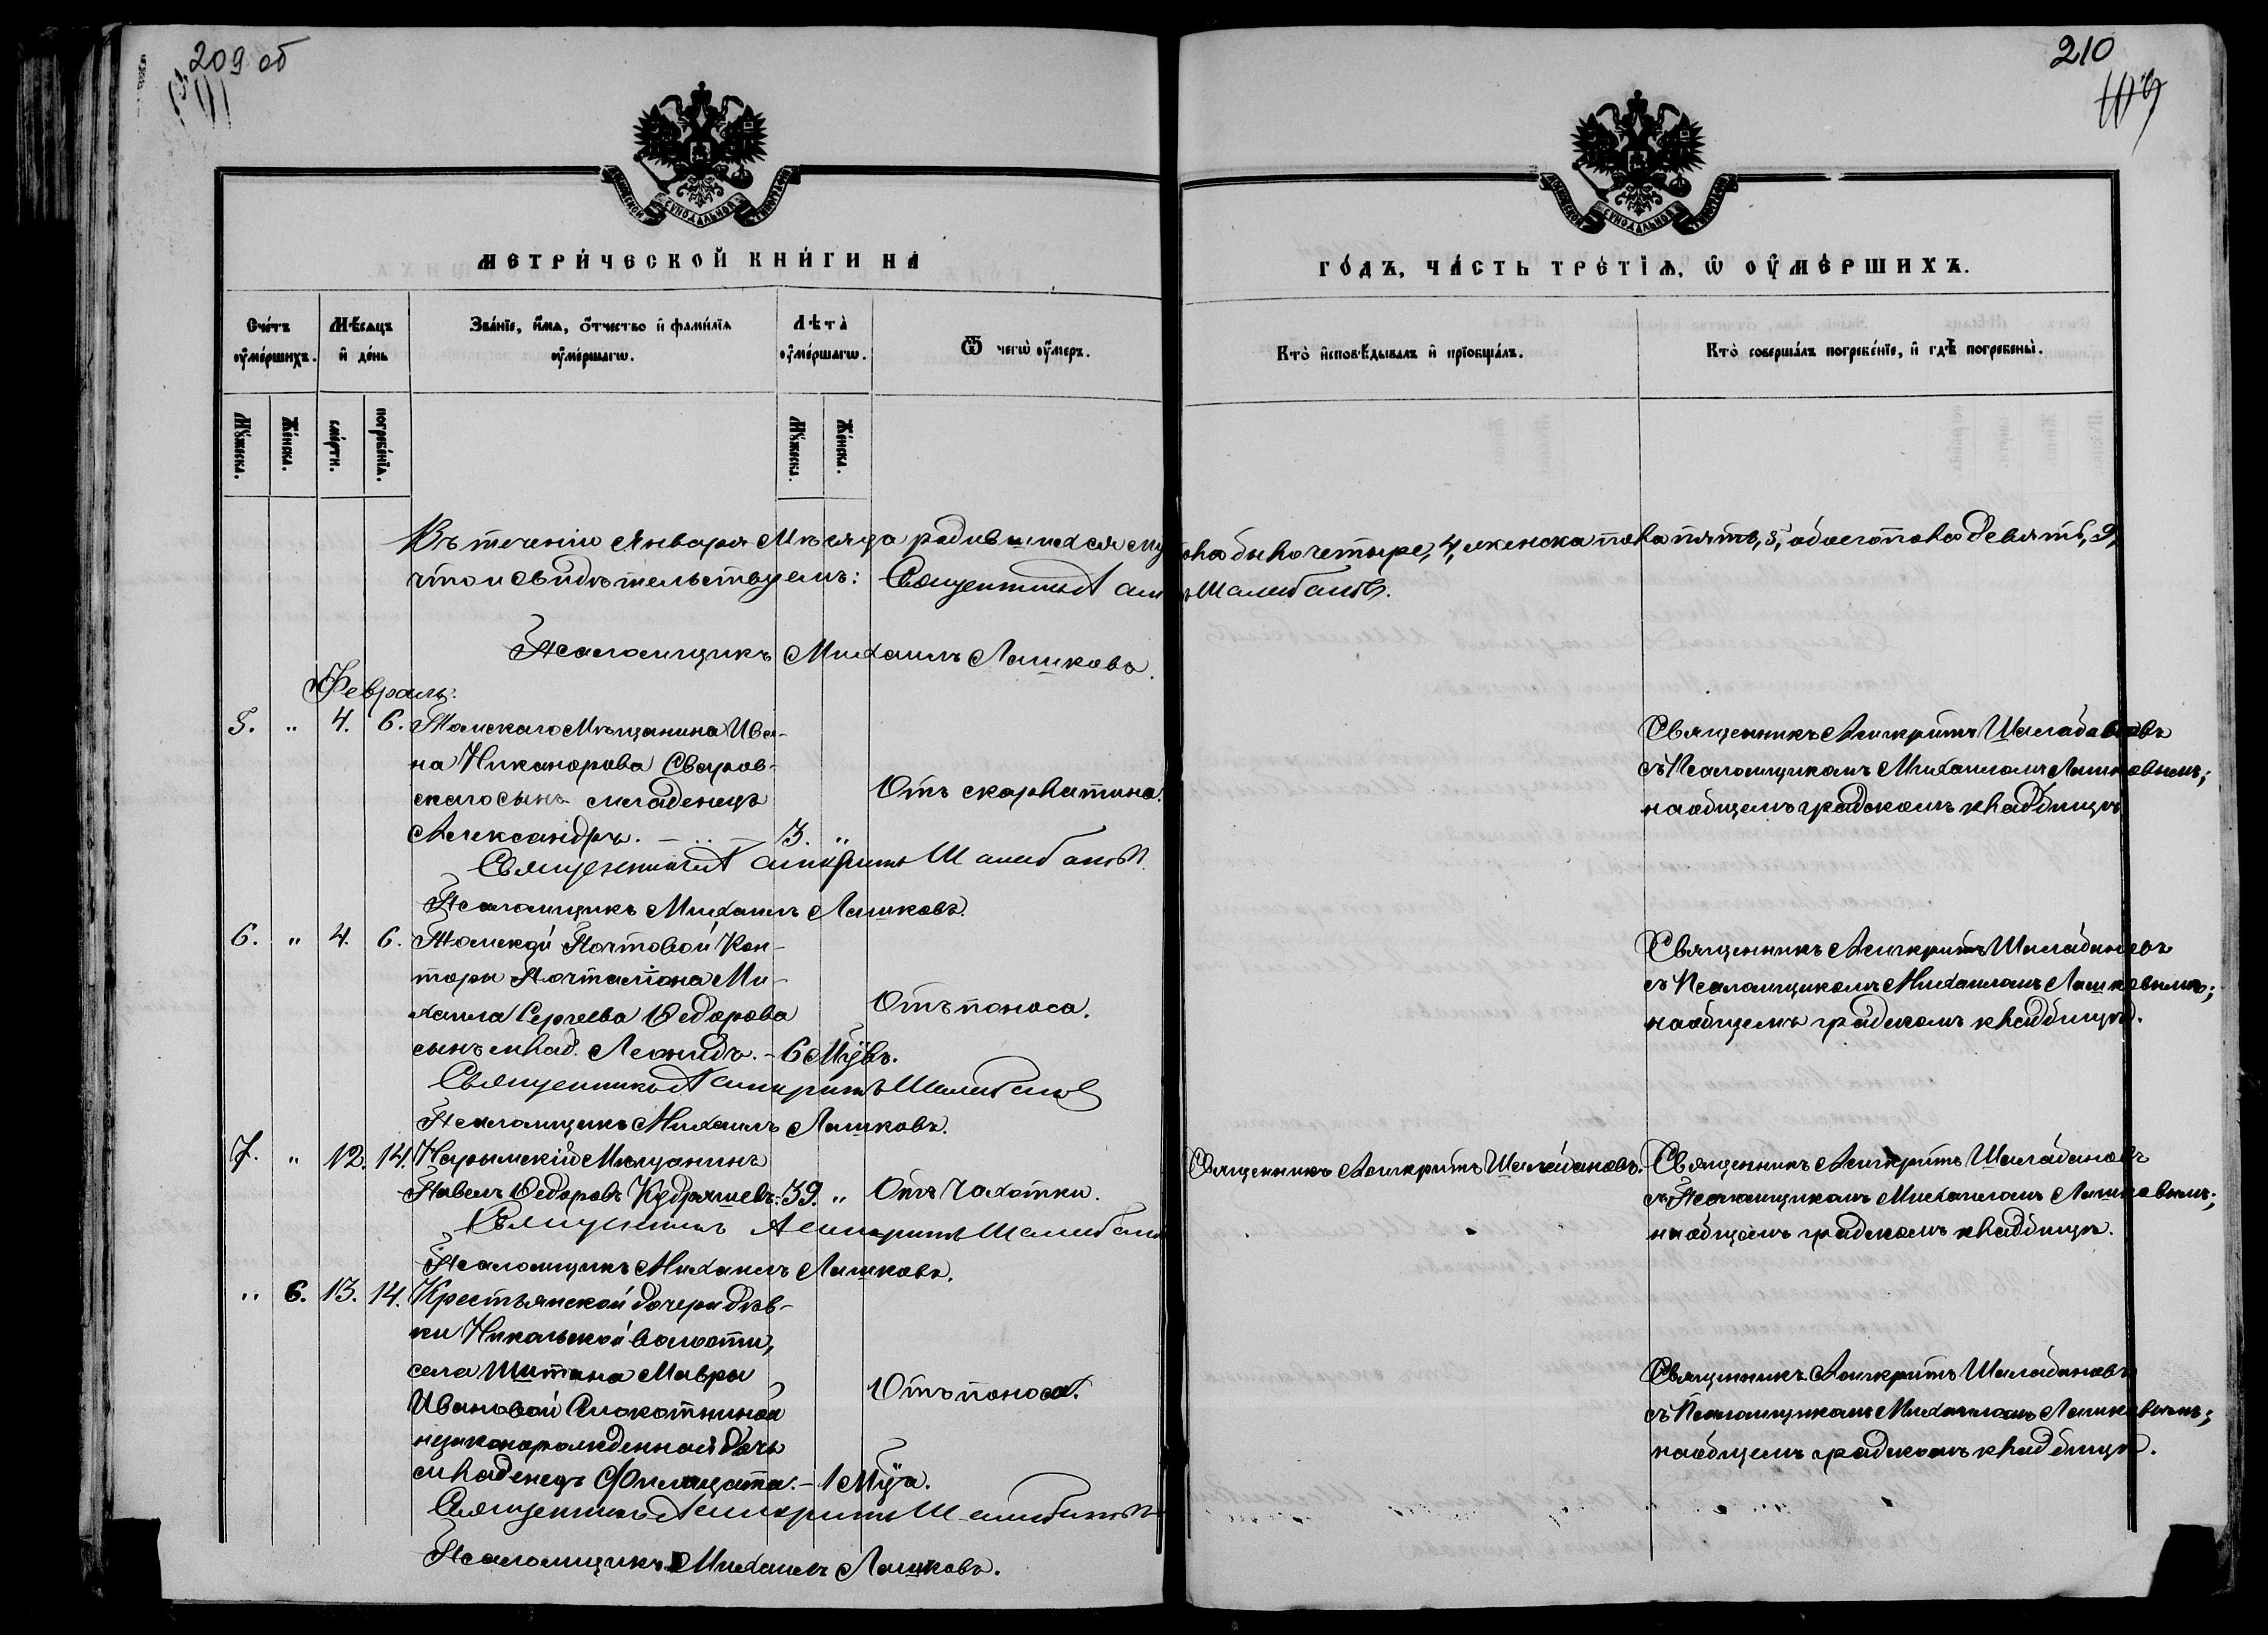 209 об
210
109
МОСКОВСКОЙ СУНОДАЛЬНОЙ ТИПОГРАФІИ
МОСКОВСКОЙ СУНОДАЛЬНОЙ ТИПОГРАФІИ
МЕТРИ́ЧЕСКОЙ КНИ́ГИ НА̀
ГО́ДЪ, ЧА́СТЬ ТРЕ́ТІѦ, Ѡ҆ ОУ҆МЕ́РШИХЪ.
Сче́тъ оу҆ме́ршихъ.
Мѣ́сѧцъ и҆ де́нь
Зва́нїе, и҆́мѧ, ѻ҆́тчество и҆ фамѝлїѧ оу҆ме́ршагѡ.
Лѣта̀ оу҆ме́ршагѡ.
Ѿ чегѡ̀ оу҆́меръ.
Кто̀ и҆сповѣ́дывалъ и҆ прїобща́лъ.
Кто̀ соверша́лъ погребе́нїе, и҆ гдѣ̀ погребены̀.
Мꙋ́жеска.
Же́нска.
сме́рти.
погребе́нїѧ.
Мꙋ́жеска.
Же́нска.
Въ теченіи Января Мѣсяца было четыре, 4, женска пола пять, 5, обоего пола девять, 9,
что и свидѣтельствуемъ: Священникъ Шалабановъ.
Псаломщикъ Михаилъ Лашковъ.
Февраль.
5. " 4. 6. Томскаго Мѣщанина Ива-
на Никанорова Сваров-
скаго сынъ младенецъ
Александръ. — 3. "
Отъ скарлатина.
Священникъ Асигкритъ Шалабановъ
съ Псаломщикомъ Михаиломъ Лашковымъ;
на общемъ градскомъ кладбищѣ
Священникъ Асигкритъ Шалабановъ
Псаломщикъ Михаилъ Лашковъ.
6. " 4. 6. Томской Почтовой Кон-
торы Почталіона Ми-
хаила Сергѣева Ѳедорова
сынъ млад. Леонидъ. - 6 Мцвъ.
Отъ поноса.
Священникъ Асигкритъ Шалабановъ
съ Псаломщикомъ Михаиломъ Лашковымъ;
на общемъ градскомъ кладбищѣ.
Священникъ Асигкритъ Шалабановъ
Псаломщикъ Михаилъ Лашковъ.
7. " 12. 14. Нарымскій Мѣщанинъ
Павелъ Ѳедоровъ Кудряшевъ: 39. " Отъ Чахотки.
Священникъ Асигкритъ Шалабановъ.
Священникъ Асигкритъ Шалабановъ
съ Псаломщикомъ Михаиломъ Лашковымъ;
на общемъ градскомъ кладбищѣ.
Священникъ Асигкритъ Шалабановъ
Псаломщикъ Михаилъ Лашковъ.
" 6. 13. 14. Крестьянской дочери дѣв-
ки Никольской волости,
села Шитана Мавры
Ивановой
незаконорожденная дочь
младенецъ Филицата. - 1 Мца.
Отъ поноса.
Священникъ Асигкритъ Шалабановъ
съ Псаломщикомъ Михаиломъ Лашковымъ;
на общемъ градскомъ кладбищѣ.
Священникъ Асигкритъ Шалабановъ
Псаломщикъ Михаилъ Лашковъ.